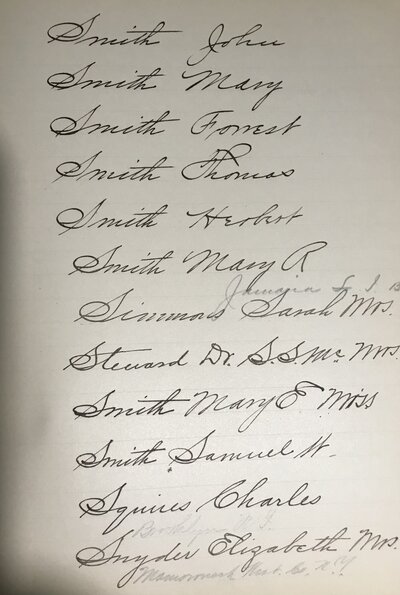 Smith John
Smith Mary
Smith Forrest
Smith Thomas
Smith Herbert
Smith Mary R
Jamaica L. I.
Simmons Sarah Mrs.
Steward Dr. S.S. Mc Mrs.
Smith Mary E Miss
Smith, Samuel W.
Squires, Charles
Brooklyn
Snyder Elizabeth Mrs.
Mamaroneck West. Co. N.Y.